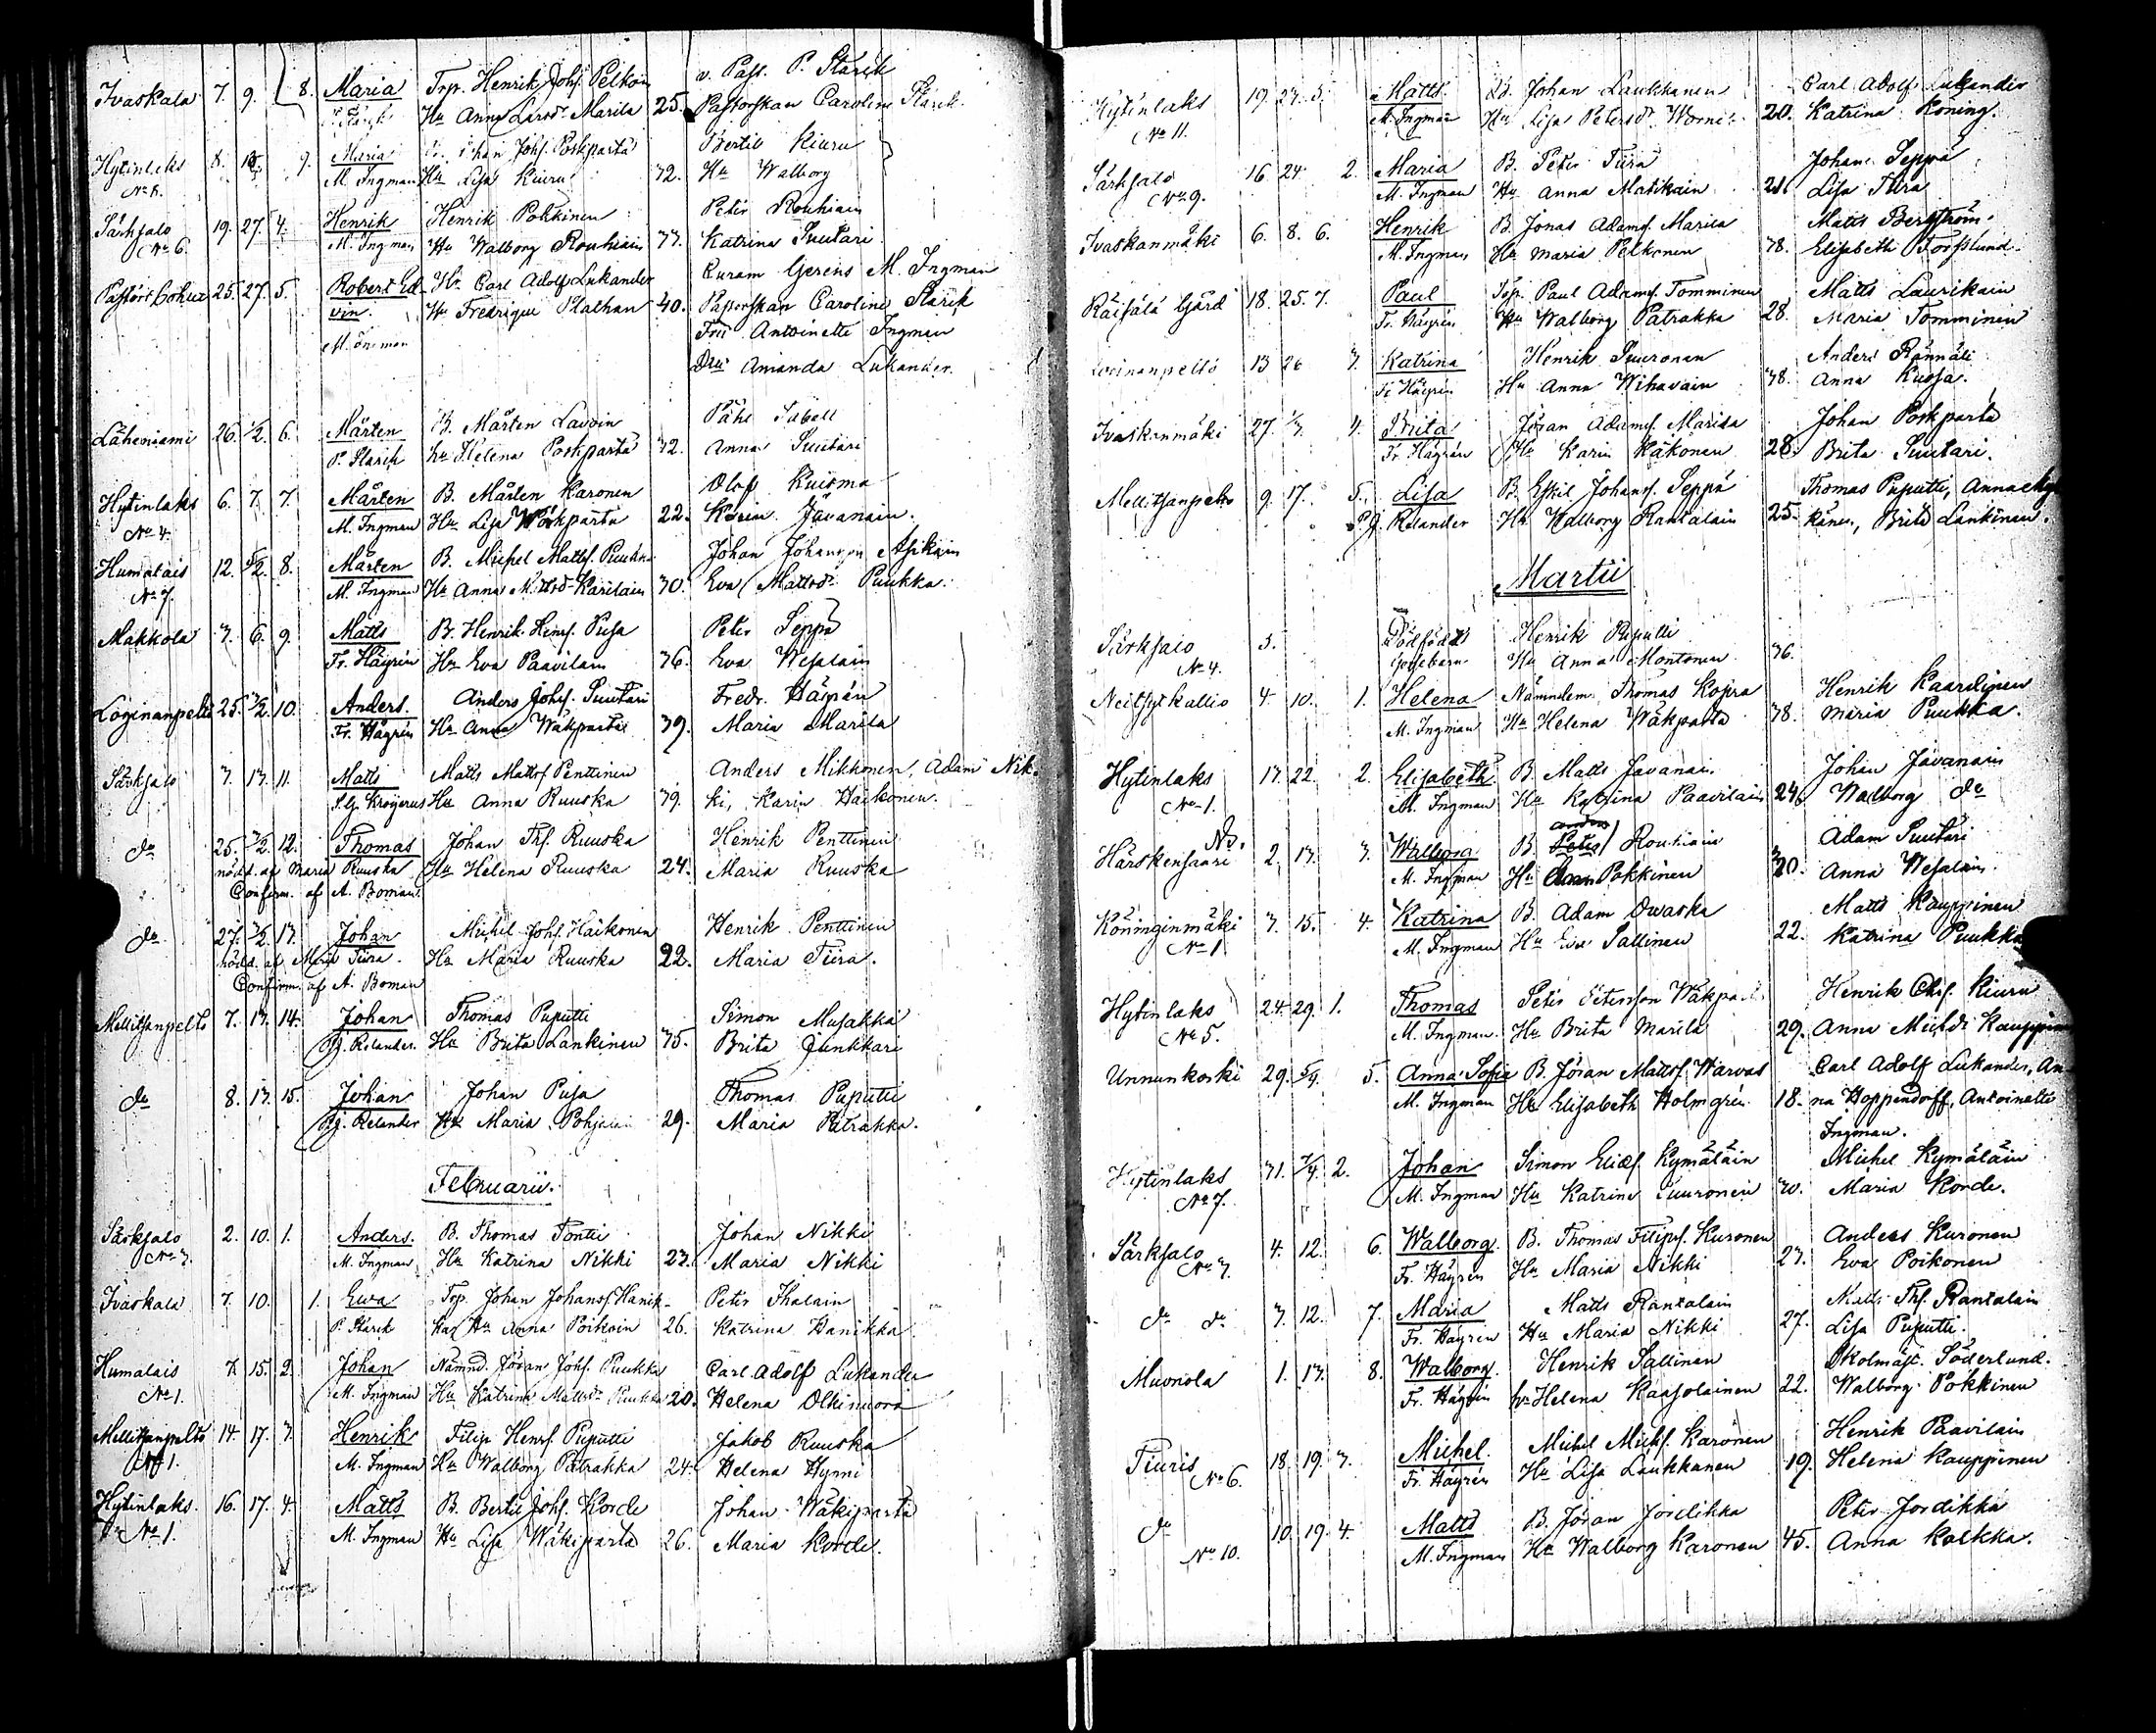 Ivaskala 7. 9. 8. Maria Trp. Henrik Johs. Pelkoin v. Past. P. Starck
P. Starck Hu Anna Larsdr Marila 25. Pastorskan Caroline Starck
Hytinlaks 8. 9. Maria Johan Johs. Poskparta Bertil Kiuru
M. Ingman Hu Lisa Kiuru 32. Hu Walborg
Särksalo 19. 27. 4. Henrik Henrik Pokkinen Peter Rouhiain
No 6. M. Ingman Hu Walborg Rouhiain 33. Katrina Suutari
25. 27. 5. Robert Ed- Hr. Carl Adolf Lukander Curam Gerens M. Ingman
vin. Hu Fredrique Stathan 40. Pastorskan Caroline Starck
M. Ingman Fru Antoinette Ingman
Amanda Lukander.
Läheniemi 26. 1/2. 6. Mårten B. Mårten Lavoin Påhl Sabell
P. Starck hu Helena Poskparta 32. Anna Suutari
Hytinlaks 6. 7. 7. Mårten B. Mårten Karonen Olof Kuisma
No 4. M. Ingman Hu Lisa Wäkparta 22. Karin Javanain.
Humalais 12. 5/2. 8. Mårten B. Michel Matts. Puukka Johan Johansson Asikain
No 7. M. Ingman Hu Anna Mattsdr Karilain 30. Eva Mattsdr Puukka.
Makkola 3. 6. 9. Matts B. Henrik Henrs. Pusa Peter Seppä
Fr. Häyrén Hu Eva Paavilain 36. Eva Wesalain
Loginanpelto 25. 3/2. 10. Anders. Anders Johs. Suutari Fredr. Häyrén
Fr. Häyrén Hu Anna Wäkparta 39. Maria Marila
Särksalo 3. 13. 11. Matts Matts Matts. Penttinen Anders Mikkonen, Adam Nik-
Hu Anna Ruuska 39. ki, Karin Haikonen.
do 25. 3/2. 12. Thomas Johan Ths. Ruuska Henrik Penttinen
nödd. af Maria Ruuska Hu Helena Ruuska 24. Maria Ruuska
Confirm. af A. Boman
do 27. 3/2. 13. Johan Michel Johs. Haikonen Henrik Penttinen
nödd. af Maria Tiira. Hu Maria Ruuska 22. Maria Tiira.
Confirm. af A. Boman
Mellitsanpelto 7. 13. 14. Johan Thomas Puputti Simon Musakka
Pj. Relander. Hu Brita Lankinen 35. Brita Junkkari
do 8. 13. 15. Johan Johan Pusa Thomas Puputti
Pj. Relander Hu Maria Pohjalain 29. Maria Patrakka.
Februarii.
Särksalo 2. 10. 1. Anders. B. Thomas Tontti Johan Nikki
No 3. M. Ingman Hu Katrina Nikki 23. Maria Nikki
Ivaskala 7. 10. 1. Ewa Trp. Johan Johans. Hanik- Peter Ihalain
P. Starck kas Hu Anna Poikoin 26. Katrina Hanikka
Humalais 7. 15. 2. Johan Nämnd. Jöran Johs. Puukka Carl Adolf Lukander
No 1. M. Ingman Hu Katrina Mattsdr Puukka 20. Helena Olkinuora
Mellitsanpelto 14. 17. 3. Henrik Filip Henrs. Puputti Jakob Ruuska
No 1. M. Ingman Hu Walborg Patrakka 24. Helena Hymi
Hytinlaks. 16. 17. 4. Matts B. Bertil Johs. Korde Johan Wäkiparta
No 1. M. Ingman Hu Lisa Wäkiparta 26. Maria Korde.
Hytinlaks 19. 23. 5. Matts B. Johan Laukkanen Carl Adolf Lukander
No 11. M. Ingman Hu Lisa Petersdr 20. Katrina Köning.
Särksalo 16. 24. 2. Maria B. Peter Tiira Johan Seppä
No 9. M. Ingman Hu Anna Matikain 21. Lisa Tiira
Ivaskanmäki 6. 8. 6. Henrik B. Jonas Adams. Marila Matts Bergström.
M. Ingman Hu Maria Pelkonen 38. Elisabeth Forslund.
Räisälä Gård 18. 25. 7. Paul Trp. Paul Adams. Tomminen Matts Laurikain
Fr. Häyrén Hu Walborg Patrakka 28. Maria Tomminen
Loginanpelto 13 26 3. Katrina Henrik Suuronen Anders Rännäli
Fr Häyrén Hu Anna Wihavain 38. Anna Kussa.
Ivaskanmäki 27. 1/3. 4. Brita Jöran Adams. Marila Johan Poskparta
Fr. Häyrén Hu Karin Käkonen 28. Brita Suutari.
Mellitsanpelto 9. 17. 5. Lisa B. Eskil Johans. Seppä Thomas Puputti, Anna
Pj. Relander Hu Walborg Rantalain 25. Brita Lankinen.
Martii
Särksalo 3. Dödfödt Henrik Puputti
No 4. gossebarn Hu Anna Montonen 36.
Neitsytkallio 4. 10. 1. Helena Nämndem. Thomas Kojra Henrik Kaardinen
M. Ingman Hu Helena Wäkparta 38. Maria Puukka.
Hytinlaks 13. 22. 2. Elisabeth B. Matts Javanain Johan Javanain
No 1. M. Ingman Hu Katrina Paavilain 24. Walborg do
No.
Härskensaari 2. 13. 3. Walborg B. Peter Rouhiain Adam Suutari
M. Ingman Hu Pokkinen 30. Anna Wesalain.
Könninginmäki 3. 15. 4. Katrina B. Adam Owaska Matts Kauppinen
No 1. M. Ingman Hu Eva Sallinen 22. Katrina Puukka
Hytinlaks 24. 29. 1. Thomas Peter Petersson Wäkparta Henrik Chrs. Kiuru
No 5. M. Ingman. Hu Brita Marila 29. Anna Michdr Kauppinen
Unnunkoski 29. 5/4. 5. Anna Sofia B. Jöran Matts. Warvas Carl Adolf Lukander, An-
M. Ingman Hu Elisabeth Holmgrén 18. na Hoppendorff, Antoinette
Ingman.
Hytinlaks 31. 7/4. 2. Johan Simon Elias. Kymäläin Michel Kymäläin
No 7. M. Ingman Hu Katrina Suuronen 30. Maria Korde.
Särksalo 4. 12. 6. Walborg. B. Thomas Filips. Kuronen Anders Kuronen
No 7. Fr. Häyrén Hu Maria Nikki 23. Eva Poikonen
do do 3. 12. 7. Maria Matts Rantalain Matts Ths. Rantalain
Fr. Häyrén Hu Maria Nikki 27. Lisa Puputti.
Muonola 1. 13. 8. Walborg. Henrik Sallinen Skolmäst. Söderlund.
Fr. Häyrén hu Helena Kaasolainen 22. Walborg Pokkinen
Tiuris 18. 19. 3. Michel. Michel Michs. Karonen Henrik Paavilain
No 6. Fr. Häyrén Hu Lisa Laukkanen 19. Helena Kauppinen
do 10. 19. 4. Matts B. Jöran Jordikka Peter Jordikka
No 10. M. Ingman Hu Walborg Karonen 45. Anna Kalkka.